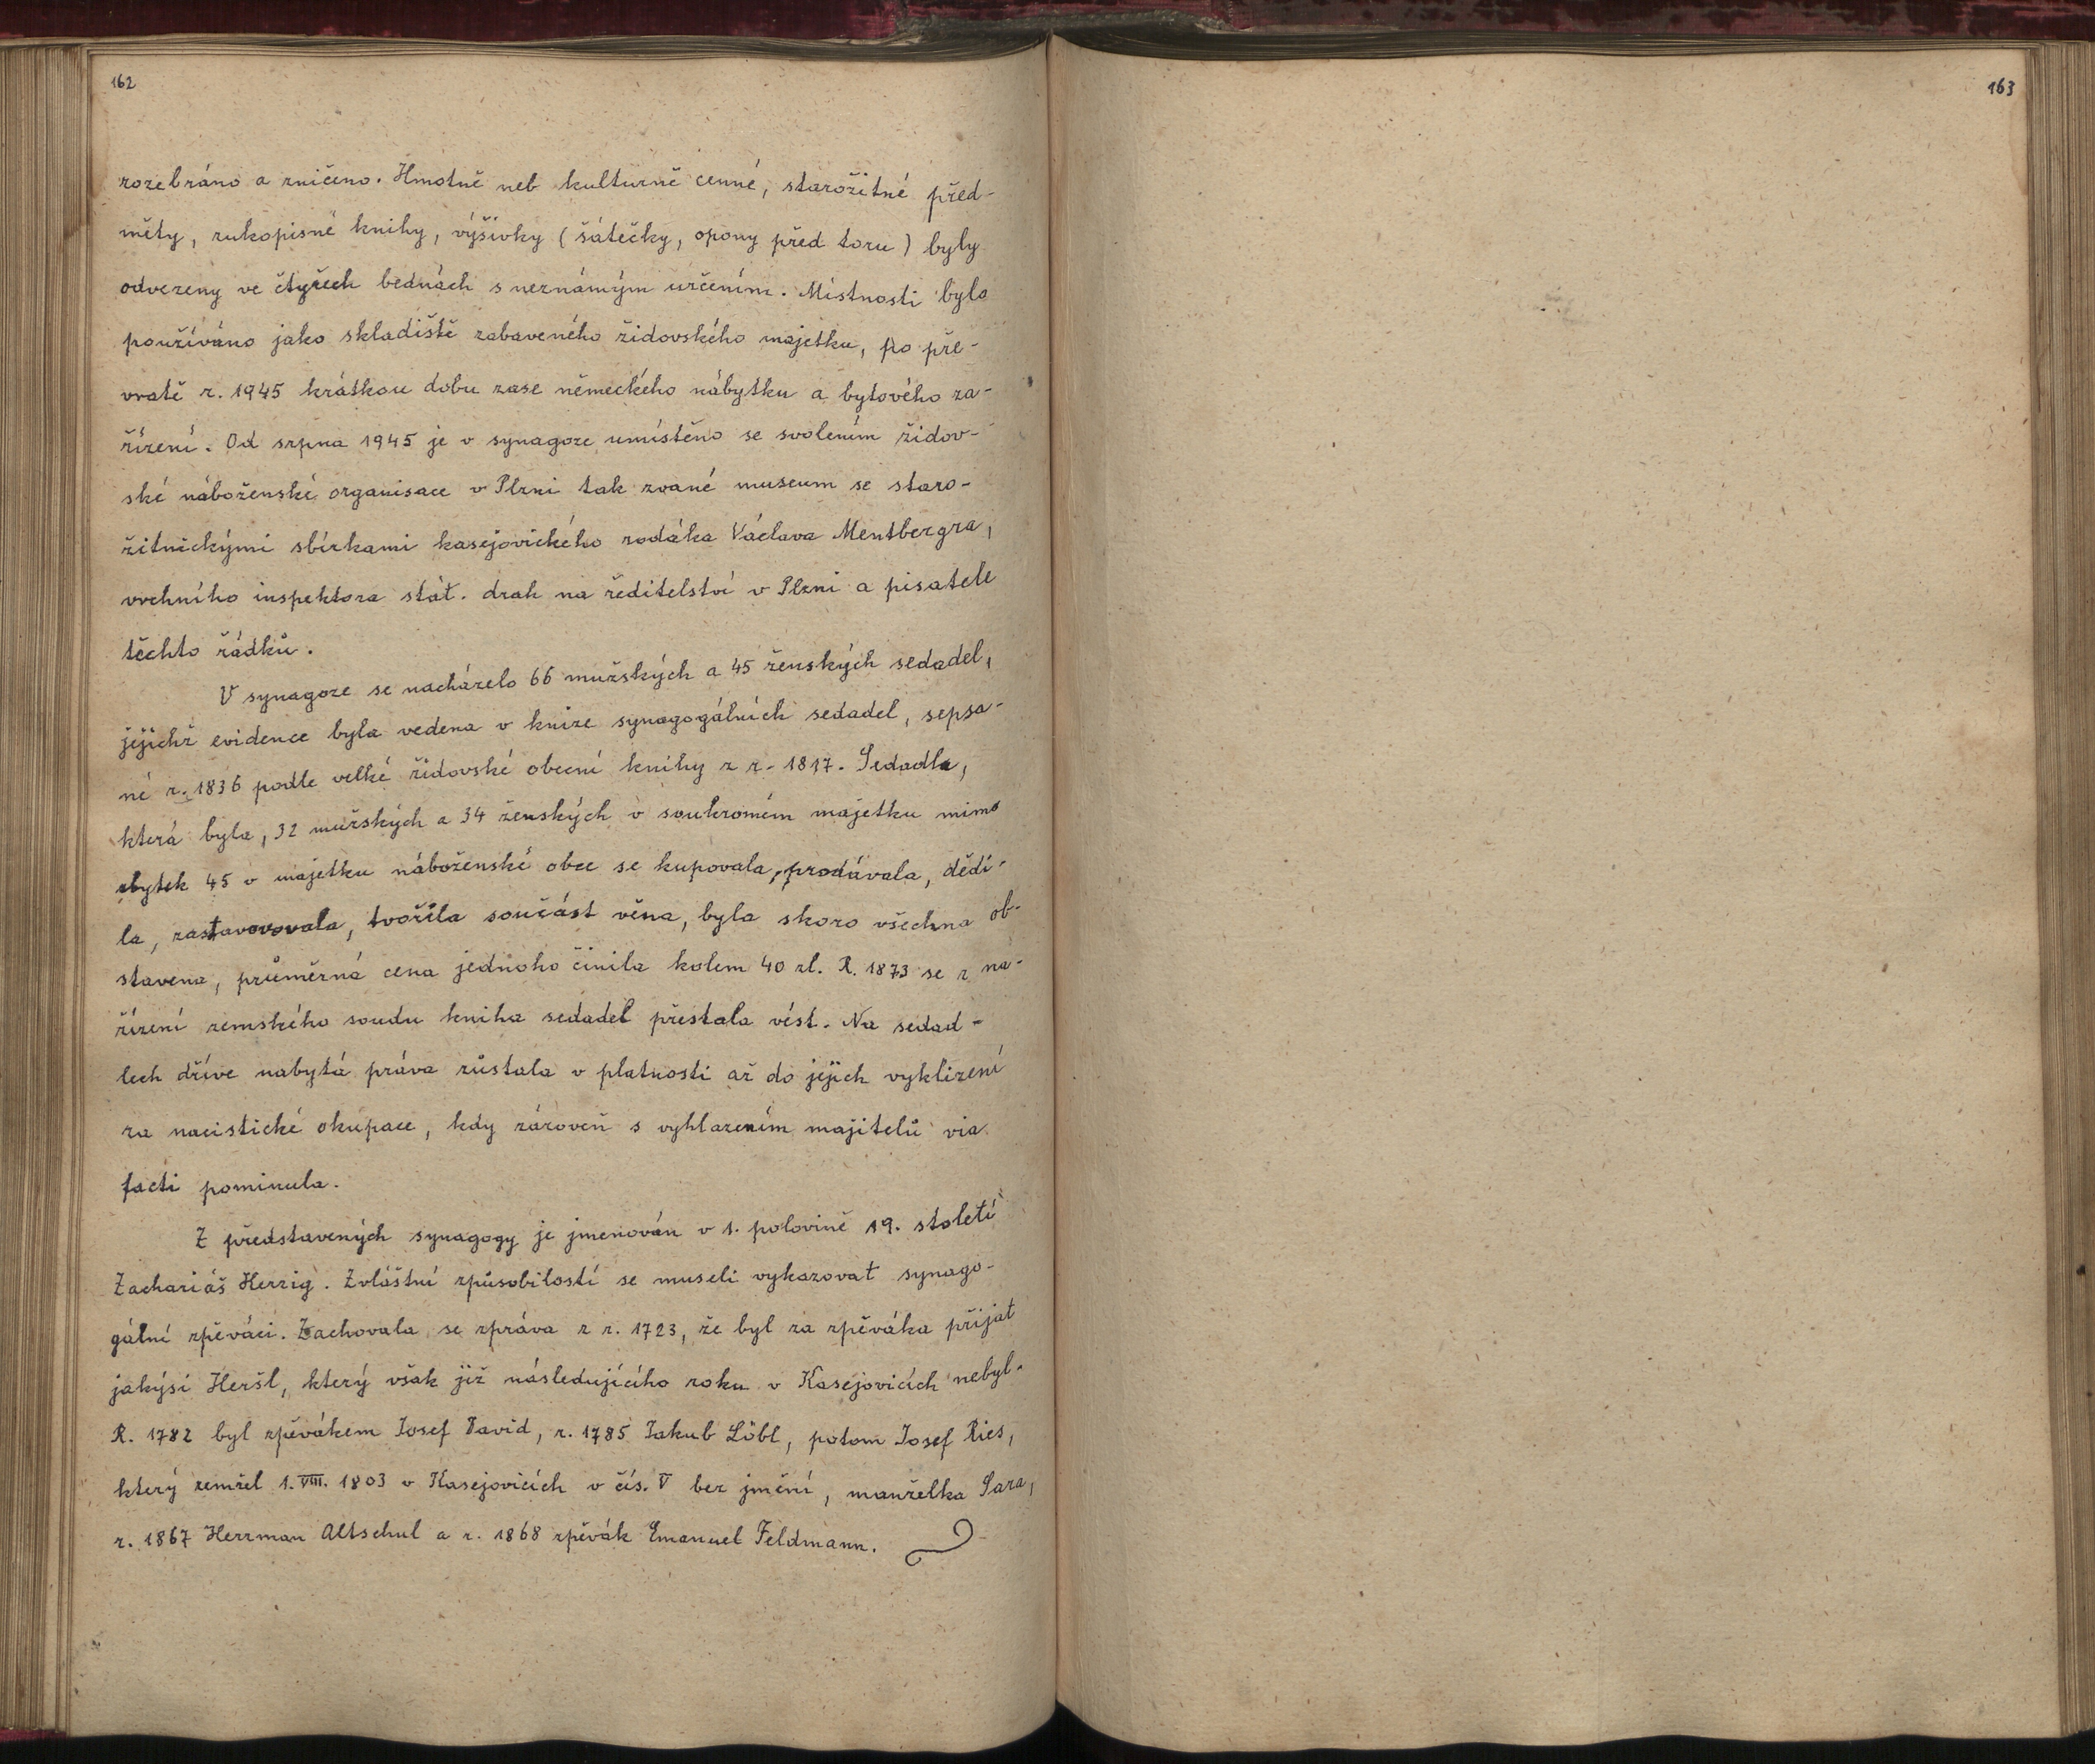 162
rozebráno a zničeno. Hmotně neb kulturně cenné, starožitné před-
měty, rukopisné knihy, výšivky (šátečky, opony před toru) byly
odvezeny ve čtyřech bednách s neznámým určením. Místnosti bylo
používáno jako skladiště zabaveného židovského majetku, po pře-
vratě r. 1945 krátkou dobu zase německého nábytku a bytového za-
řízení. Od srpna 1945 je v synagoze umístěno se svolením židov-
ské náboženské organisace v Plzni tak zvané museum se staro-
žitnickými sbírkami kasejovického rodáka Václava Mentbergra,
vrchního inspektora stát. drah na ředitelství v Plzni a pisatele
těchto řádků.
V synagoze se nacházelo 66 mužských a 45 ženských sedadel,
jejichž evidence byla vedena v knize synagogálních sedadel, sepsa-
né r. 1836 podle velké židovské obecní knihy z r. 1817. Sedadla,
která byla, 32 mužských a 34 ženských v soukromém majetku mimo
zbytek 45 v majetku náboženské obce se kupovala, prodávala, dědi-
la, zastavovovala, tvořila součást věna, byla skoro všechna ob-
stavena, průměrná cena jednoho činila kolem 40 zl. R. 1873 se z na-
řízení zemského soudu kniha sedadel přestala vést. Na sedad-
lech dříve nabytá práva zůstala v platnosti až do jejich vyklizení
za nacistické okupace, kdy zároveň s vyhlazením majitelů via
facti pominula.
Z představených synagogy je jmenován v 1. polovině 19. století
Zachariáš Herzig. Zvláštní způsobilostí se museli vykazovat synago-
gální zpěváci. Zachovala se zpráva z r. 1723, že byl za zpěváka přijat
jakýsi Heršl, který však již následujícího roku v Kasejovicích nebyl.
R. 1782 byl zpěvákem Josef David, r. 1785 Jakub Löbl, potom Josef Ries,
který zemřel 1. VIII. 1803 v Kasejovicích v čís. V bez jmění, manželka Sara,
r. 1867 Herrman Altschul a r. 1868 zpěvák Emanuel Feldmann.
163